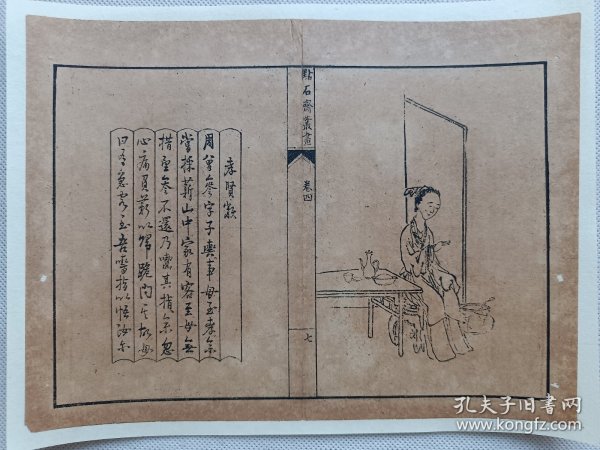 點石齋叢畫
卷四
七
周曾參字子輿事母至孝參
嘗採薪山中家有客至母無
措望參不還乃嚙其指參忽
心痛負薪以歸跪問其故母
曰有急客至吾嚙指以悟汝尔
孔夫子旧书网
www.kongfz.com